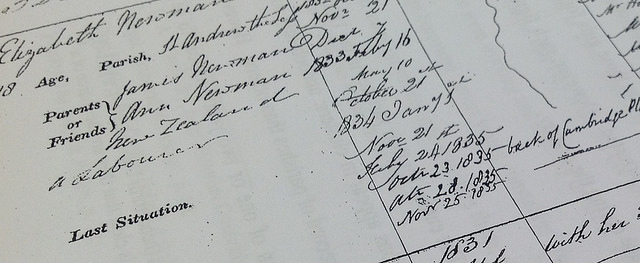 Elizabeth Newman
18. Age, Parish, St Andrew the
Parents or Friends } James Newman
Ann Newman
New Zealand
a Labourer
Last Situation.
Novr 21
Decr 7
1833 Feby 16
May 10
October 21st
1834 Jany
Novr 21st
July 24 1835
Octr 23. 1835 back of Cambridge Pl
28. 1835
Novr 25. 1835
1831
with her